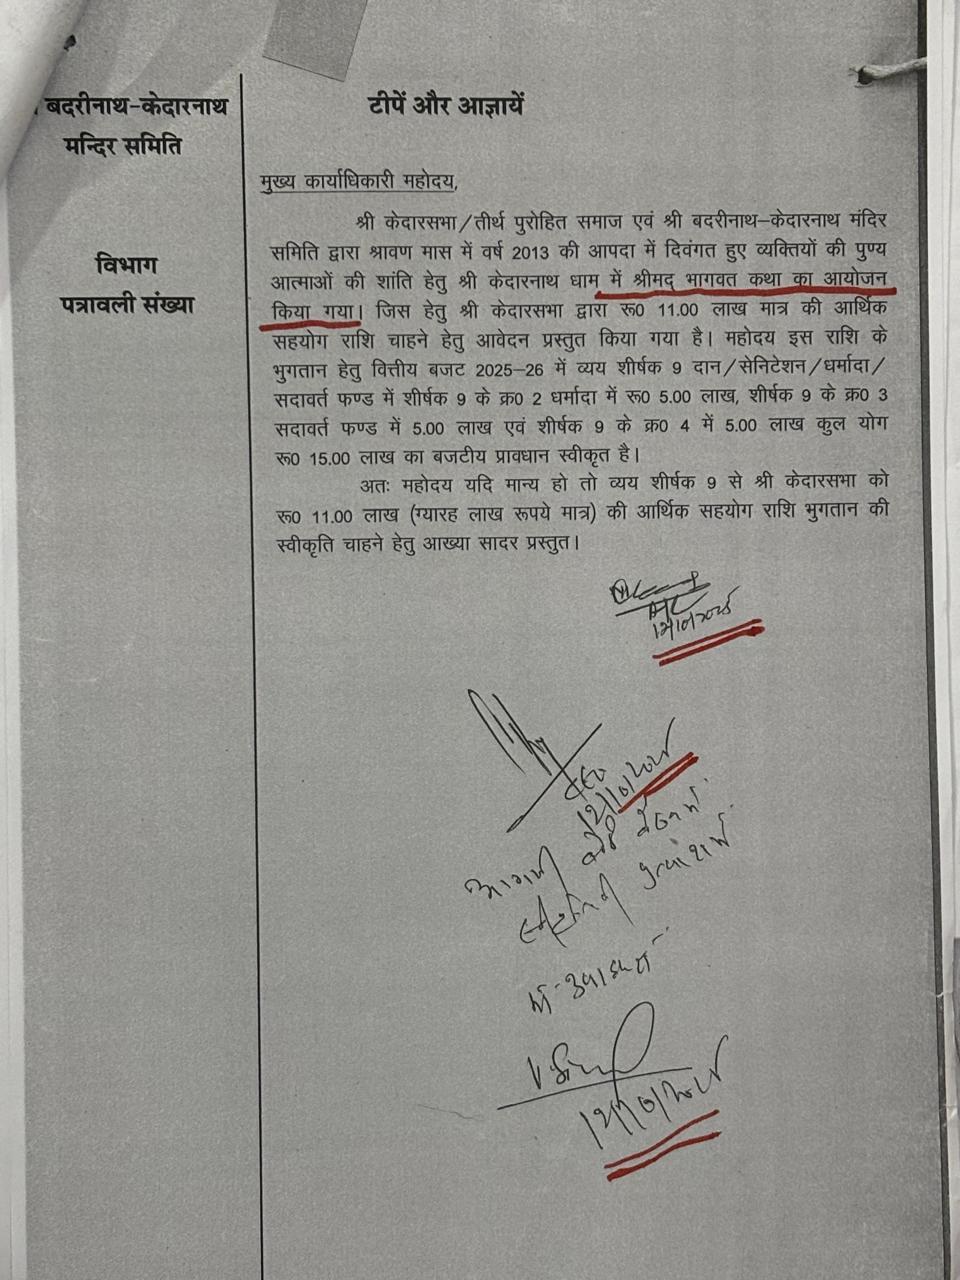 बदरीनाथ-केदारनाथ
मन्दिर समिति
विभाग
पत्रावली संख्या
टीपें और आज्ञायें
मुख्य कार्याधिकारी महोदय,
श्री केदारसभा/तीर्थ पुरोहित समाज एवं श्री बदरीनाथ-केदारनाथ मंदिर
समिति द्वारा श्रावण मास में वर्ष 2013 की आपदा में दिवंगत हुए व्यक्तियों की पुण्य
आत्माओं की शांति हेतु श्री केदारनाथ धाम में श्रीमद् भागवत कथा का आयोजन
किया गया। जिस हेतु श्री केदारसभा द्वारा रू0 11.00 लाख मात्र की आर्थिक
सहयोग राशि चाहने हेतु आवेदन प्रस्तुत किया गया है। महोदय इस राशि के
भुगतान हेतु वित्तीय बजट 2025-26 में व्यय शीर्षक 9 दान/सेनिटेशन/धर्मादा/
सदावर्त फण्ड में शीर्षक 9 के क्र0 2 धर्मादा में रू0 5.00 लाख, शीर्षक 9 के क्र0 3
सदावर्त फण्ड में 5.00 लाख एवं शीर्षक 9 के क्र0 4 में 5.00 लाख कुल योग
रू0 15.00 लाख का बजटीय प्रावधान स्वीकृत है।
अतः महोदय यदि मान्य हो तो व्यय शीर्षक 9 से श्री केदारसभा को
रू0 11.00 लाख (ग्यारह लाख रूपये मात्र) की आर्थिक सहयोग राशि भुगतान की
स्वीकृति चाहने हेतु आख्या सादर प्रस्तुत।
आगामी बोर्ड बैठक में
स्वीकृति प्रत्याशा में